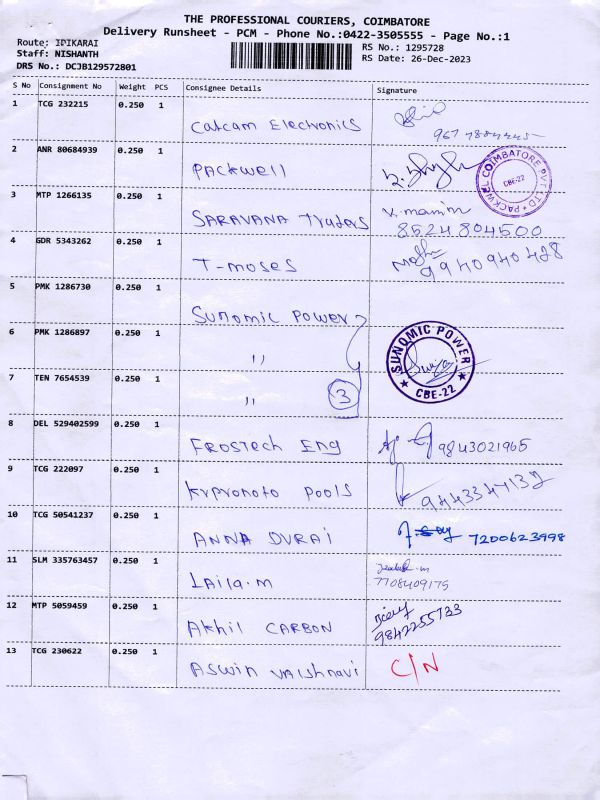 THE PROFESSIONAL COURIERS, COIMBATORE
Delivery Runsheet - PCM - Phone No.:0422-3505555 - Page No.:1
Route: IDIKARAI
Staff: NISHANTH
DRS No.: DCJB129572801
RS No.: 1295728
RS Date: 26-Dec-2023
S No Consignment No Weight PCS Consignee Details Signature
1 TCG 232215 0.250 1 Catcam Electronics
2 ANR 80684939 0.250 1 PACKWell
PACKWEL COIMBATORE PVT LTD CBE-22
3 MTP 1266135 0.250 1 SARAVANA Traders V. manim
8524804500
4 GDR 5343262 0.250 1 T-moses 9940940428
5 PMK 1286730 0.250 1 Sunomic Power
6 PMK 1286897 0.250 1 ,,
SUNOMIC POWER CBE-22
7 TEN 7654539 0.250 1 ,, 3
8 DEL 529402599 0.250 1 FROSTech Eng 9843021965
9 TCG 222097 0.250 1 Pools
10 TCG 50541237 0.250 1 ANNA DURAI 7200623998
11 SLM 335763457 0.250 1 Laila.m
7708409175
12 MTP 5059459 0.250 1 Akhil CARBON
9842255733
13 TCG 230622 0.250 1 Aswin vaishnavi C/N